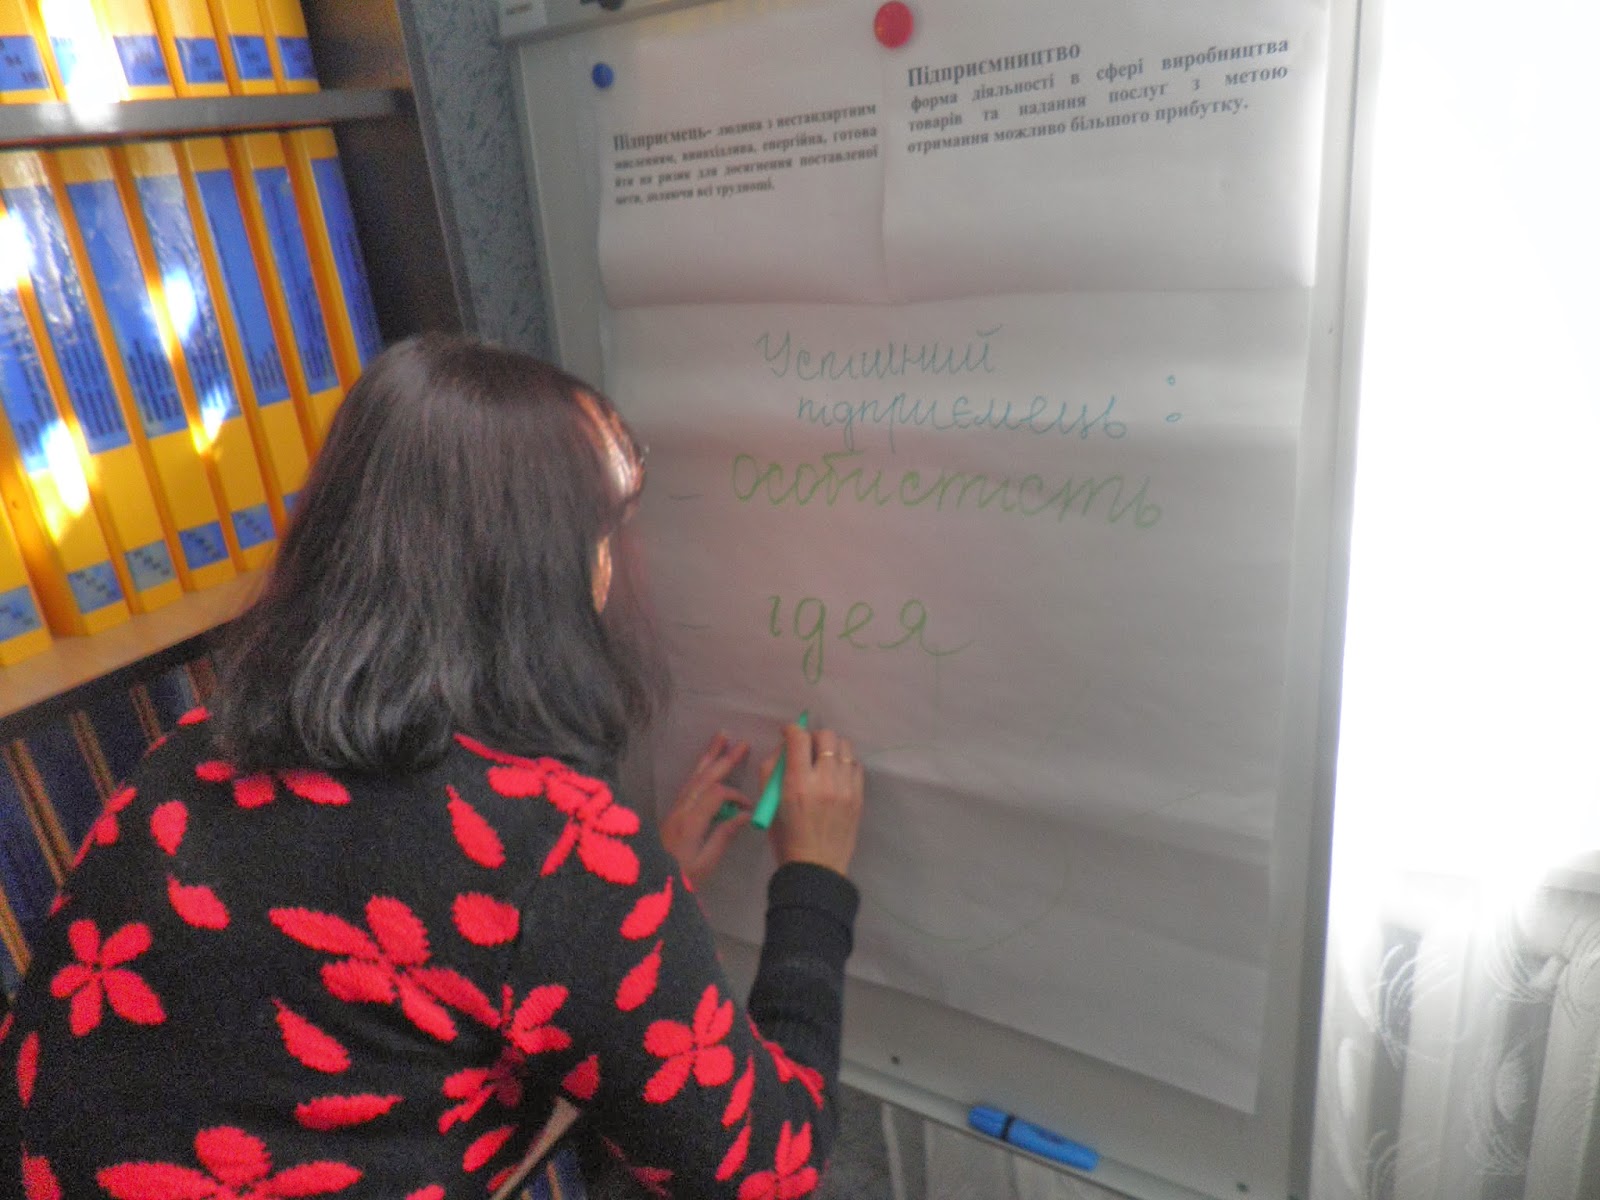 Підприємець- людина з нестандартним
мисленням, винахідлива, енергійна, готова
йти на ризик для досягнення поставленої
мети, долаючи всі труднощі.
Підприємництво
форма діяльності в сфері виробництва
товарів та надання послуг з метою
отримання можливо більшого прибутку.
Успішний
підприємець:
- особистість
- ідея